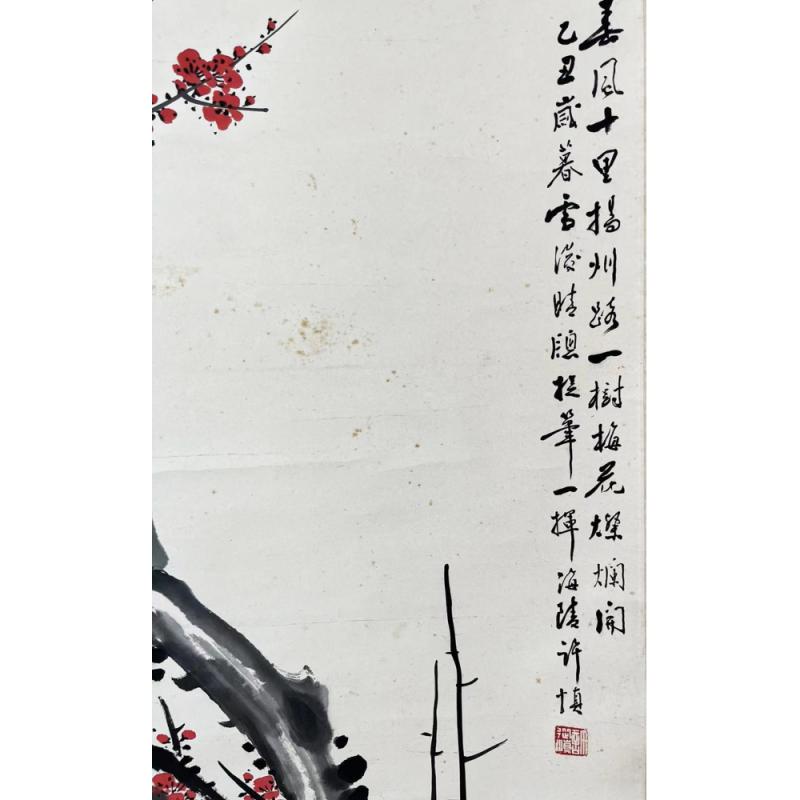 春風十里揚州路一樹梅花燦爛開
乙丑歲暮雪後晴窗提筆一揮海陵許慎